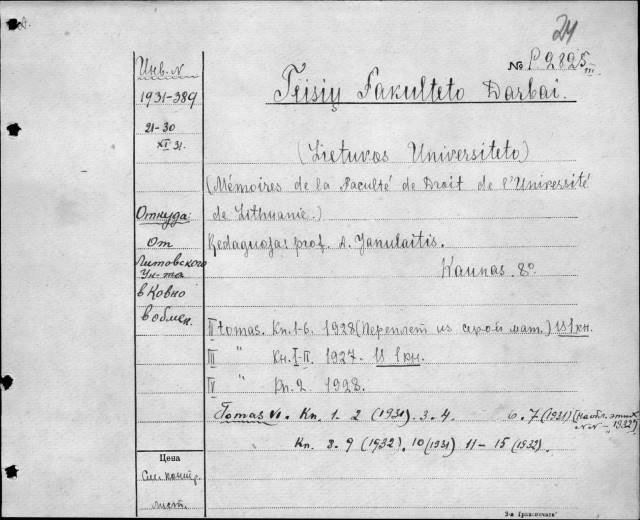 24
№ P2825 III
Инв. N
1931-389
21-30
XI 31.
Teisių Fakulteto Darbai.
(Lietuvos Universiteto)
(Mémoires de la Faculté de Droit de l'Université
de Lithuanie.)
Откуда:
От
Литовского
Ун-та
в Ковно
в обмен.
Redaguojas prof. A. Janulaitis.
Kaunas. 8º
II tomas. Kn. 1-6. 1928 (Переплет из сер мат.) 1 кн.
III " Кн. I-II. 1927. 1 кн.
IV " Kn. 2. 1928.
Tomas VI. Kn. 1. 2 (1931). 3. 4. 6. 7 (1931) (на обл. этих
N N - 1932)
Kn. 8. 9 (1932). 10 (1931) 11-15 (1932).
Цена
См. контр.
лист.
3-я Гравопечать